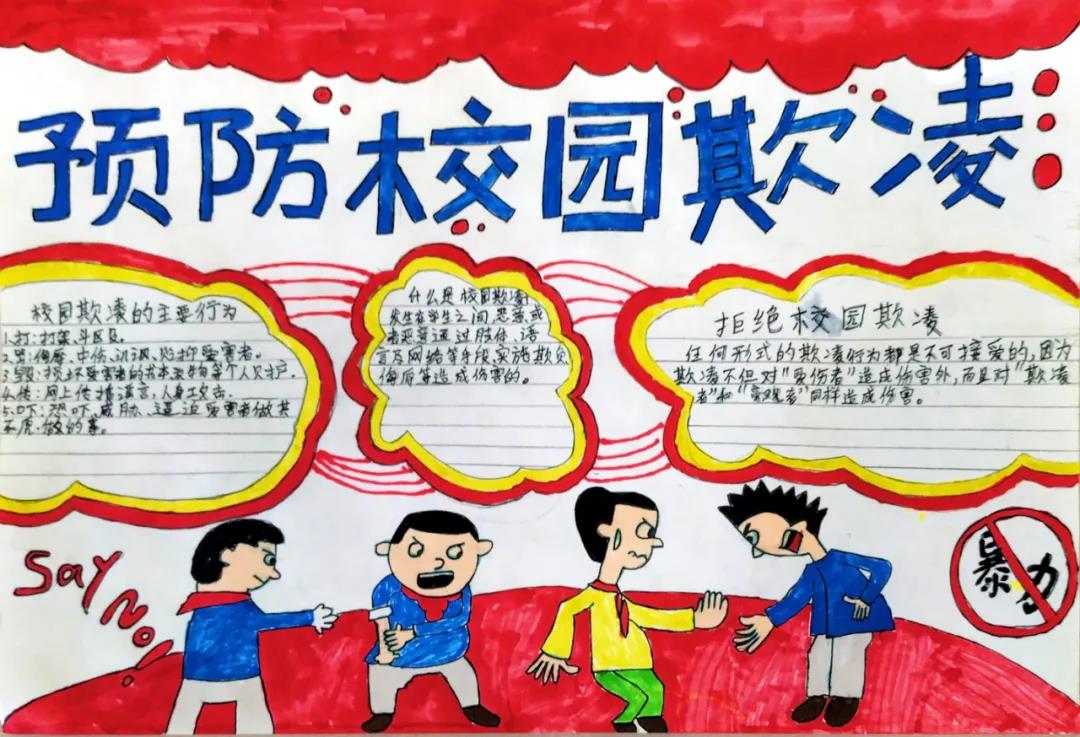 预防校园欺凌
校园欺凌的主要行为
1.打:打架、斗殴。
2.骂:侮辱、中伤、讥讽、贬抑受害者。
3.毁:损坏受害者的书本衣物等个人财产。
4.传:网上传播谣言,人身攻击。
5.吓:恐吓、威胁、逼迫受害者做其
不愿做的事。
什么是校园欺凌
发生在学生之间,恶意或
者恶意通过肢体、语
言及网络等手段,实施欺负
侮辱等造成伤害的。
拒绝校园欺凌
任何形式的欺凌行为都是不可接爱的,因为
欺凌不但对“受伤者”造成伤害外,而且对“欺凌
者”和“旁观者”同样造成伤害。
Say No!
暴力